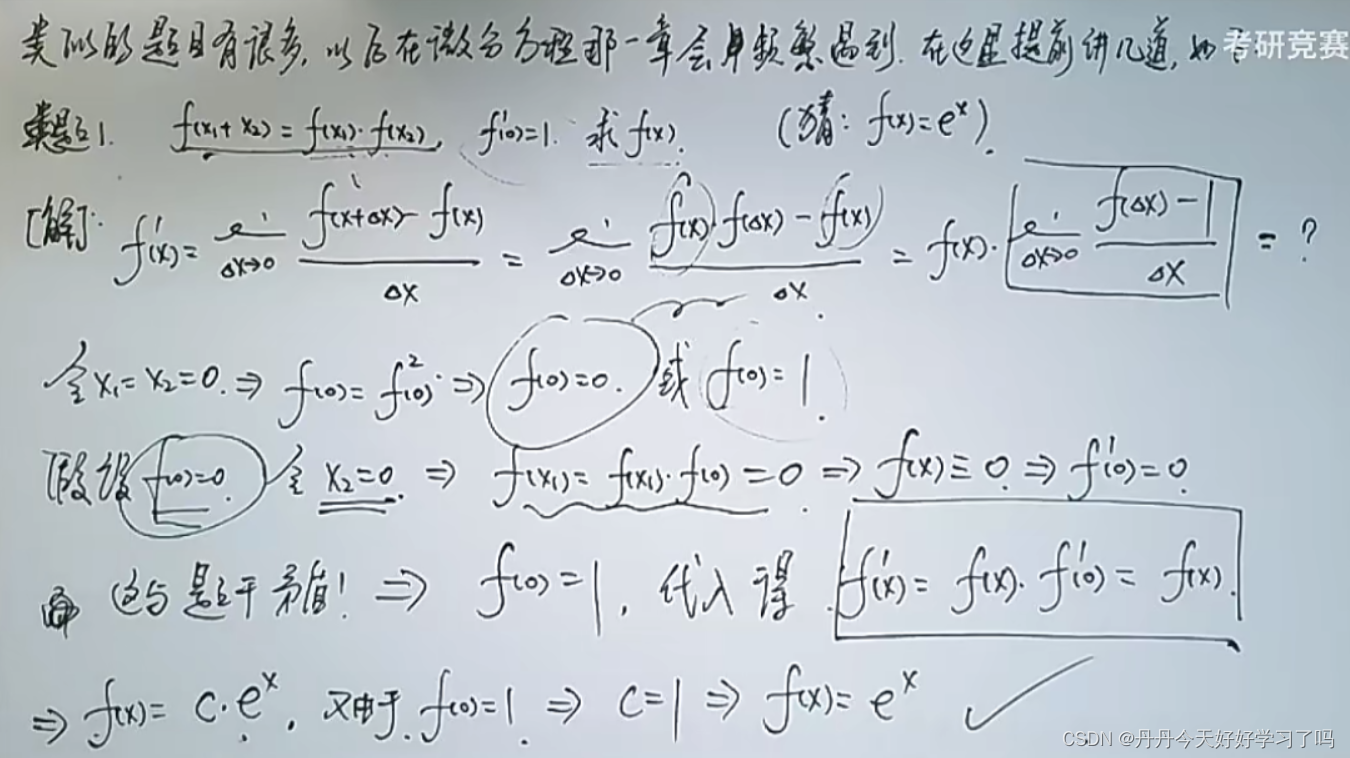 类似的题目有很多,以后在微分方程那一章会频繁遇到.在这里提前讲几道,如 考研竞赛
类题1. f(x₁+x₂)=f(x₁)·f(x₂), f'(0)=1. 求f(x). (猜: f(x)=eˣ).
[解]: f'(x)= lim Δx→0 (f(x+Δx)-f(x))/Δx = lim Δx→0 (f(x)·f(Δx)-f(x))/Δx = f(x)· lim Δx→0 (f(Δx)-1)/Δx = ?
令x₁=x₂=0. ⇒ f(0)=f²(0). ⇒ f(0)=0. 或 f(0)=1.
假设f(0)=0. 令x₂=0. ⇒ f(x₁)=f(x₁)·f(0)=0. ⇒ f(x)≡0. ⇒ f'(0)=0.
这与题干矛盾! ⇒ f(0)=1, 代入得. f'(x)=f(x)·f'(0)=f(x).
⇒ f(x)=C·eˣ. 又由于 f(0)=1. ⇒ C=1 ⇒ f(x)=eˣ ✓
CSDN @丹丹今天好好学习了吗